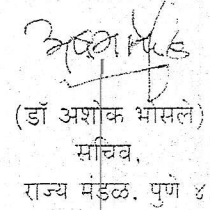 (डॉ अशोक भोसले)
सचिव,
राज्य मंडळ, पुणे ४